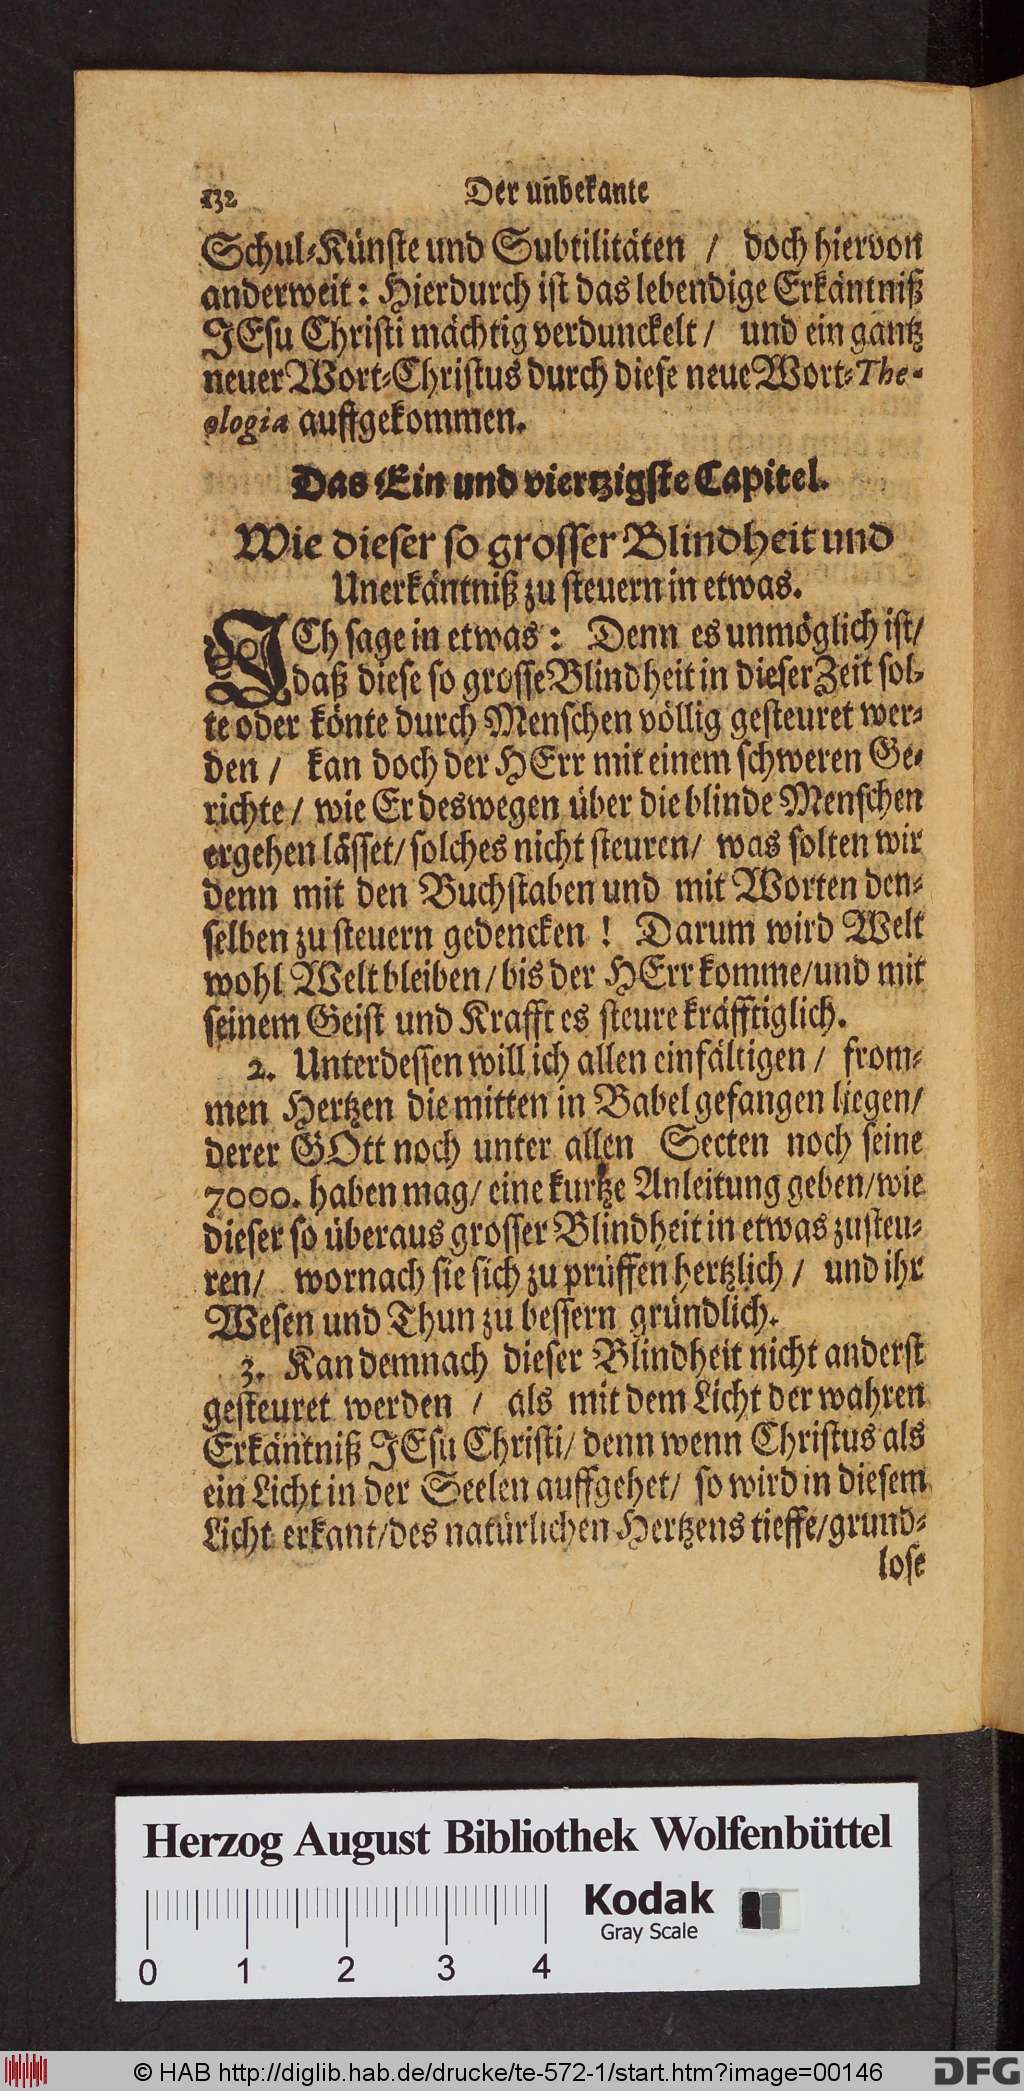 132 Der unbekante
Schul-Künste und Subtilitäten / doch hiervon
anderweit: Hierdurch ist das lebendige Erkäntniß
JEsu Christi mächtig verdunckelt / und ein gantz
neuer Wort-Christus durch diese neue Wort-The-
ologia auffgekommen.
Das Ein und viertzigste Capitel.
Wie dieser so grosser Blindheit und
Unerkäntniß zu steuern in etwas.
ICh sage in etwas: Denn es unmöglich ist/
daß diese so grosse Blindheit in dieser Zeit sol-
te oder könte durch Menschen völlig gesteuret wer-
den / kan doch der HErr mit einem schweren Ge-
richte / wie Er deswegen über die blinde Menschen
ergehen lässet/ solches nicht steuren/ was solten wir
denn mit den Buchstaben und mit Worten den-
selben zu steuern gedencken ! Darum wird Welt
wohl Welt bleiben / bis der HErr komme/und mit
seinem Geist und Krafft es steure kräfftiglich.
2. Unterdessen will ich allen einfältigen / from-
men Hertzen die mitten in Babel gefangen liegen/
derer GOtt noch unter allen Secten noch seine
7000. haben mag/ eine kurtze Anleitung geben/wie
dieser so überaus grosser Blindheit in etwas zusteu-
ren/ wornach sie sich zu prüffen hertzlich / und ihr
Wesen und Thun zu bessern gründlich.
3. Kan demnach dieser Blindheit nicht anderst
gesteuret werden / als mit dem Licht der wahren
Erkäntniß JEsu Christi/ denn wenn Christus als
ein Licht in der Seelen auffgehet/ so wird in diesem
Licht erkant/des natürlichen Hertzens tieffe/grund-
lose
Herzog August Bibliothek Wolfenbüttel
Kodak
Gray Scale
0 1 2 3 4
© HAB http://diglib.hab.de/drucke/te-572-1/start.htm?image=00146
DFG